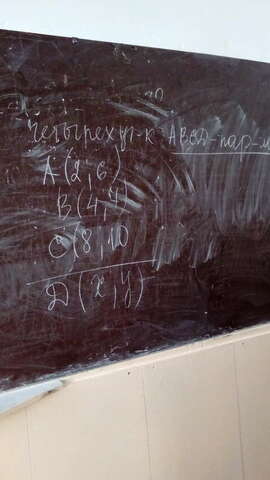 Четырехуг-к АВСД-пар-м
А(2;6)
В(4,4)
С(8,10
Д(х,у)